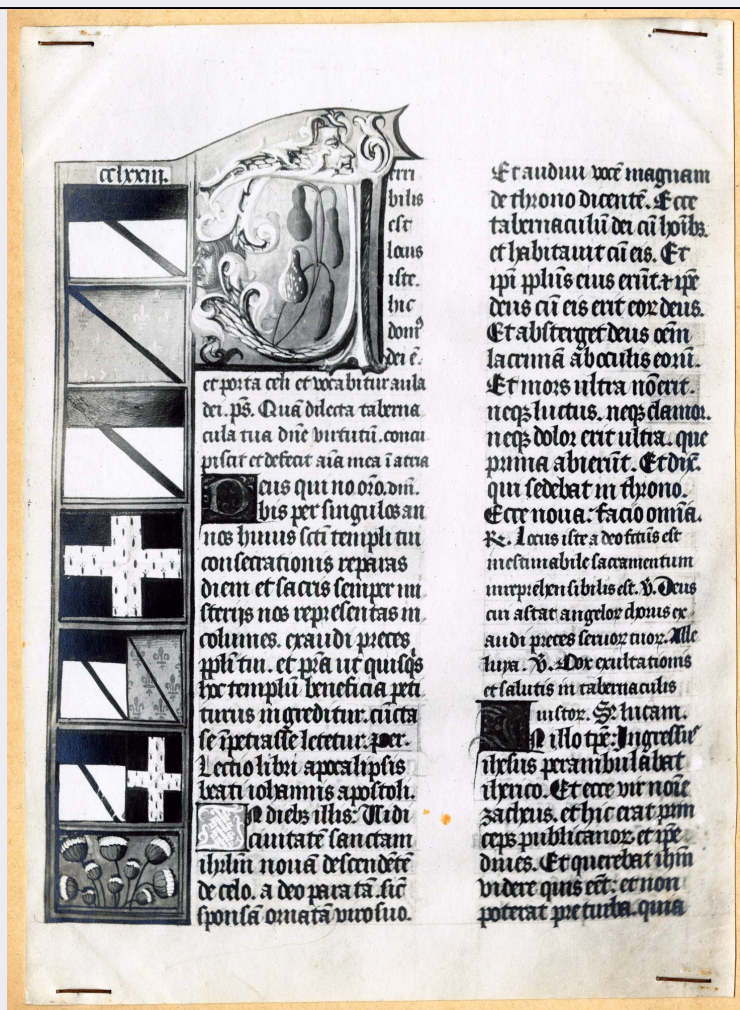 cclxxiii.
Terri
bilis
est
locus
iste.
hic
domꝰ
dei ē.
et porta celi et vocabitur aula
dei. p̄s. Quā dilecta taberna
cula tua dn̄e virtutū. concu
piscit et defecit aīa mea ī atria
Deus qui no oro. dm̄.
bis per singulos an
nos huius scti templi tui
consecrationis reparas
diem et sacris semper mi
sterijs nos representas in
columes. exaudi preces
pplī tui. et prā ut quisqs
hoc templū beneficia peti
turus ingreditur. cūcta
se īpetrasse letetur. per.
Lectio libri apocalipsis
beati iohannis apostoli.
In diebꝫ illis: Uidi
ciuitatē sanctam
ihrlm̄ nouā descendētē
de celo. a deo paratā. sic̄
sponsā ornatā viro suo.
Et audiui vocē magnam
de throno dicentē. Ecce
tabernaculū dei cū hoībꝫ
et habitauit cū eis. Et
ipī ppl̄us eius erūt. ⁊ ip̄e
deus cū eis erit eoꝝ deus.
Et absterget deus oēm
lacrimā ab oculis eorū.
Et mors ultra nō erit.
neqꝫ luctus. neqꝫ clamor.
neqꝫ dolor erit ultra. que
prima abierūt. Et dix̄.
qui sedebat in throno.
Ecce noua: facio omīa.
R̄. Locus iste a deo factus est
inestimabile sacramentum
inreprehensibilis est. v̄. Deus
cui astat angeloꝝ chorus ex
audi preces seruoꝝ tuoꝝ. Alle
luya. v̄. Vox exultationis
et salutis in tabernaculis
iustoꝝ. S. lucam.
In illo tp̄e: Ingressus
ihesus perambulabat
iherico. Et ecce vir noīe
zacheus. et hic erat prin
ceps publicanoꝝ et ip̄e
diues. Et querebat ihm̄
videre quis eēt: et non
poterat pre turba. quia